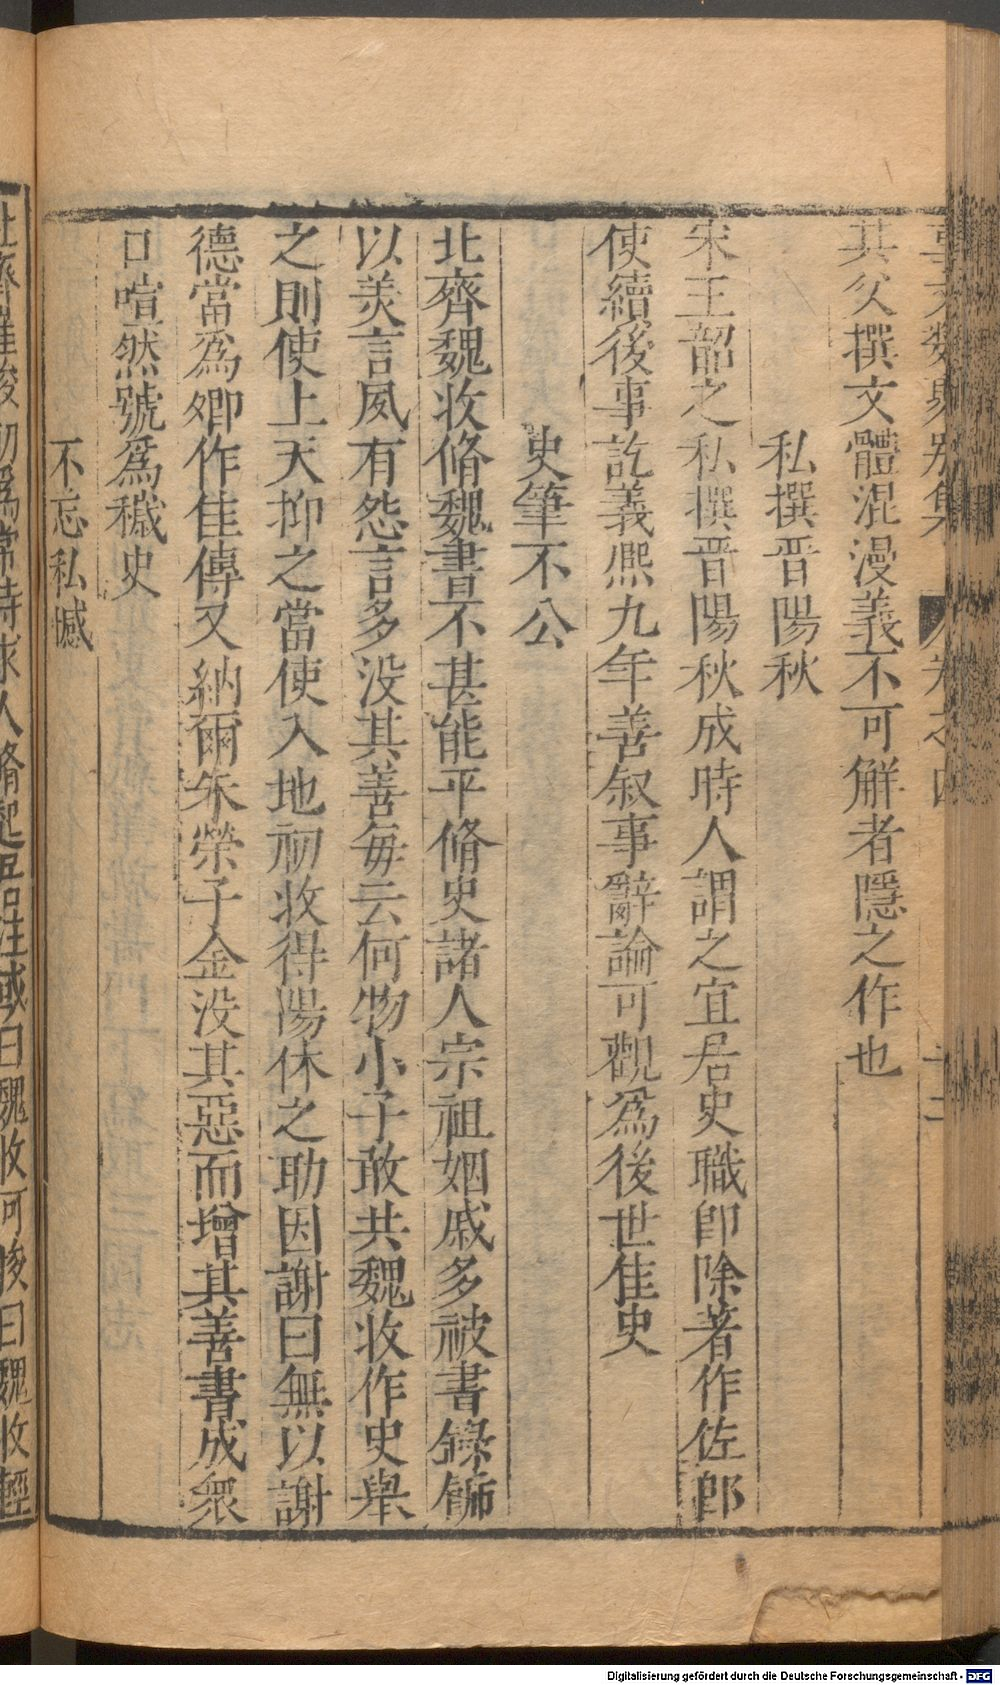 事文類聚別集 卷之四 十二
其父撰文體混漫義不可觧者隱之作也
私撰晋陽秋
宋王韶之私撰晋陽秋成時人謂之宜居史職即除著作佐郎
使續後事訖義熈九年善叙事辭論可觀爲後世佳史
史筆不公
北齊魏收脩魏書不甚能平脩史諸人宗祖姻戚多被書錄飾
以羙言夙有怨言多没其善毎云何物小子敢共魏收作史舉
之則使上天抑之當使入地初收得陽休之助因謝曰無以謝
德當爲卿作佳傳又納爾朱榮子金没其惡而增其善書成衆
口喧然號爲穢史
不忘私憾
北齊崔㥄初爲常侍求人脩起居注或曰魏收可㥄曰魏收輕
Digitalisierung gefördert durch die Deutsche Forschungsgemeinschaft - DFG